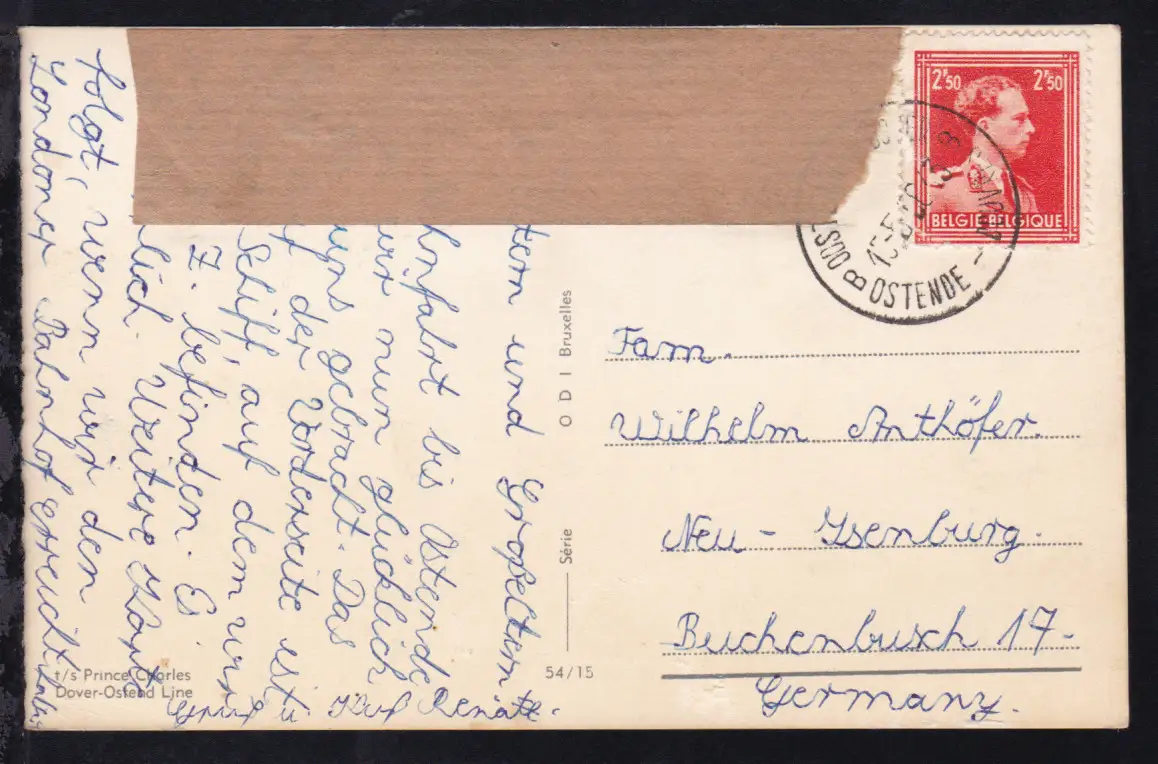 tern und Großeltern.
nfahrt bis Ostende
wir nun glücklich
uns gebracht. Das
f der Vorderseite ist
Schiff, auf dem wir
z. befinden. Es
lich. Weitere Karte
folgt, wenn wir den
Londoner Bahnhof erreicht
u. Renate.
t/s Prince Charles
Dover-Ostend Line
54/15
Série
O D I Bruxelles
2F50 2F50
BELGIE-BELGIQUE
OOSTENDE
Fam.
Wilhelm Anthöfer.
Neu-Isenburg.
Buchenbusch 17-
Germany.